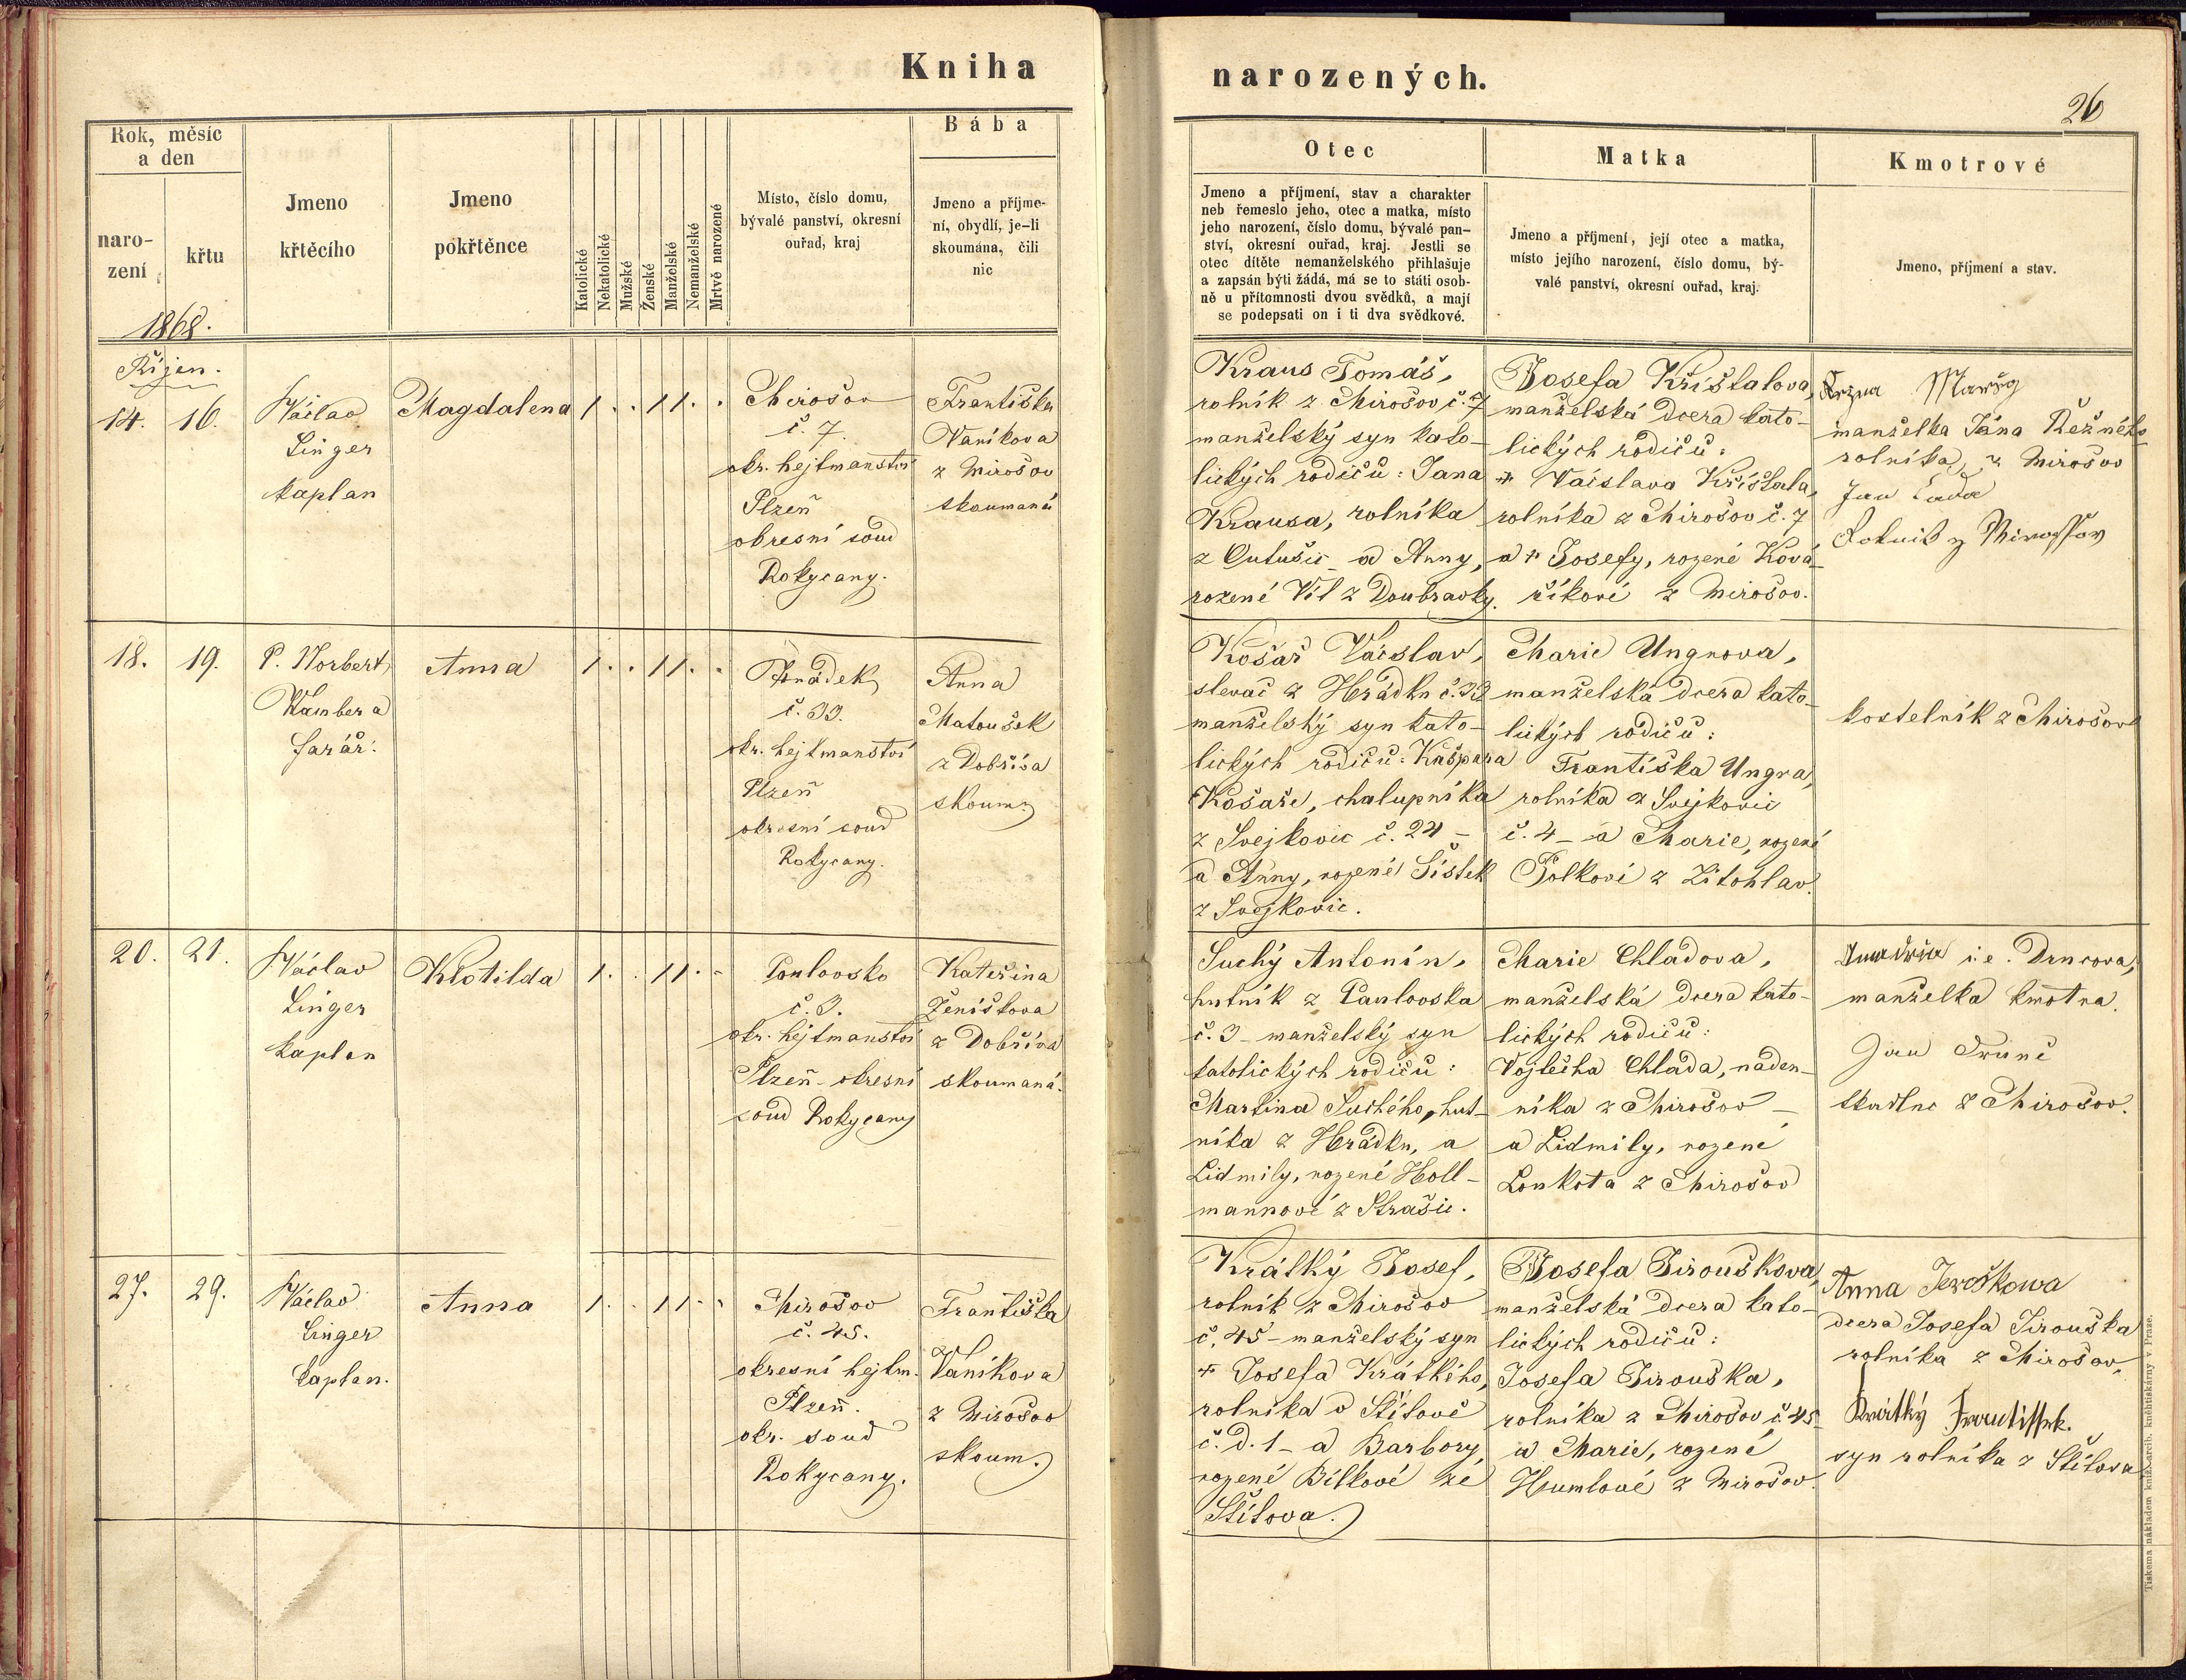 Kniha
narozených.
26
Rok, měsíc
a den
naro-
zení
křtu
1868.
Jmeno
křtěcího
Jmeno
pokřtěnce
Katolické
Nekatolické
Mužské
Ženské
Manželské
Nemanželské
Mrtvě narozené
Místo, číslo domu,
bývalé panství, okresní
ouřad, kraj
Bába
Jmeno a příjme-
ní, obydlí, je-li
skoumána, čili
nic
Otec
Jmeno a příjmení, stav a charakter
neb řemeslo jeho, otec a matka, místo
jeho narození, číslo domu, bývalé pan-
ství, okresní ouřad, kraj. Jestli se
otec dítěte nemanželského přihlašuje
a zapsán býti žádá, má se to státi osob-
ně u přítomnosti dvou svědků, a mají
se podepsati on i ti dva svědkové.
Matka
Jmeno a příjmení, její otec a matka,
místo jejího narození, číslo domu, bý-
valé panství, okresní ouřad, kraj.
Kmotrové
Jmeno, příjmení a stav.
Říjen.
14. 16.
Václav
Linger
kaplan
Magdalena
1 . . 1 1 . .
Mirošov
č. 7.
okr. hejtmanství
Plzeň
okresní soud
Rokycany.
Františka
Vaníkova
z Mirošov
skoumaná
Kraus Tomáš,
rolník z Mirošov č. 7
manželský syn kato-
lických rodičů: Jana
Krausa, rolníka
z Outušic - a Anny,
rozené Vít z Doubravky.
Josefa Kříštalova,
manželská dcera kato-
lických rodičů:
+ Václava Kříštala,
rolníka z Mirošov č. 7
a + Josefy, rozené Ková-
říkové z Mirošov.
manželka Jána Režného
rolníka z Mirošov
Jan Lada
Rolnik z Mirossov
18. 19.
P. Norbert
Wambera
farář.
Anna
1 . . 1 1 . .
Hrádek
č. 33.
okr. hejtmanství
Plzeň
okresní soud
Rokycany.
Anna
Matoušek
z Dobříva
skoum.
Košař Václav,
slevač z Hrádku č. 33
manželský syn kato-
lických rodičů: Kašpara
Košaře, chalupníka
z Svejkovic č. 24 -
a Anny, rozené Šístek
z Svejkovic.
Marie Ungrova,
manželská dcera kato-
lických rodičů:
Františka Ungra,
rolníka z Svejkovic
č. 4 - a Marie, rozené
Folkové z Litohlav.
kostelník z Mirošova
20. 21.
Václav
Linger
kaplan
Klotilda
1 . . 1 1 . .
Pavlovsko
č. 3.
okr. hejtmanství
Plzeň - okresní
soud Rokycany
Kateřina
Ženíškova
z Dobříva
skoumaná.
Suchý Antonín,
hutník z Pavlovska
č. 3 - manželský syn
katolických rodičů:
Martina Suchého, hut-
níka z Hrádku, a
Lidmily, rozené Holl-
mannové z Strašic.
Marie Chladova,
manželská dcera kato-
lických rodičů:
Vojtěcha Chlada, náden-
níka z Mirošov -
a Lidmily, rozené
Loukota z Mirošov
i. e. Drncova,
manželka kmotra.
Jan
tkadlec z Mirošov.
27. 29.
Václav
Linger
kaplan.
Anna
1 . . 1 1 . .
Mirošov
č. 45.
okresní hejtm.
Plzeň.
okr. soud
Rokycany.
Františka
Vaníkova
z Mirošov
skoum.
Králký Josef,
rolník z Mirošov
č. 45 - manželský syn
+ Josefa Králkého,
rolníka v Štítově
č. d. 1 - a Barbory,
rozené Bílkové ze
Štítova.
Josefa Jirouškova,
manželská dcera kato-
lických rodičů:
Josefa Jirouška,
rolníka z Mirošov č. 45
a Marie, rozené
Humlové z Mirošov.
Anna
dcera Josefa Jirouška
rolníka z Mirošov.
Králký Frantissek.
syn rolníka z Štítova
Tiskem a nákladem kníž. arcib. knihtiskárny v Praze.